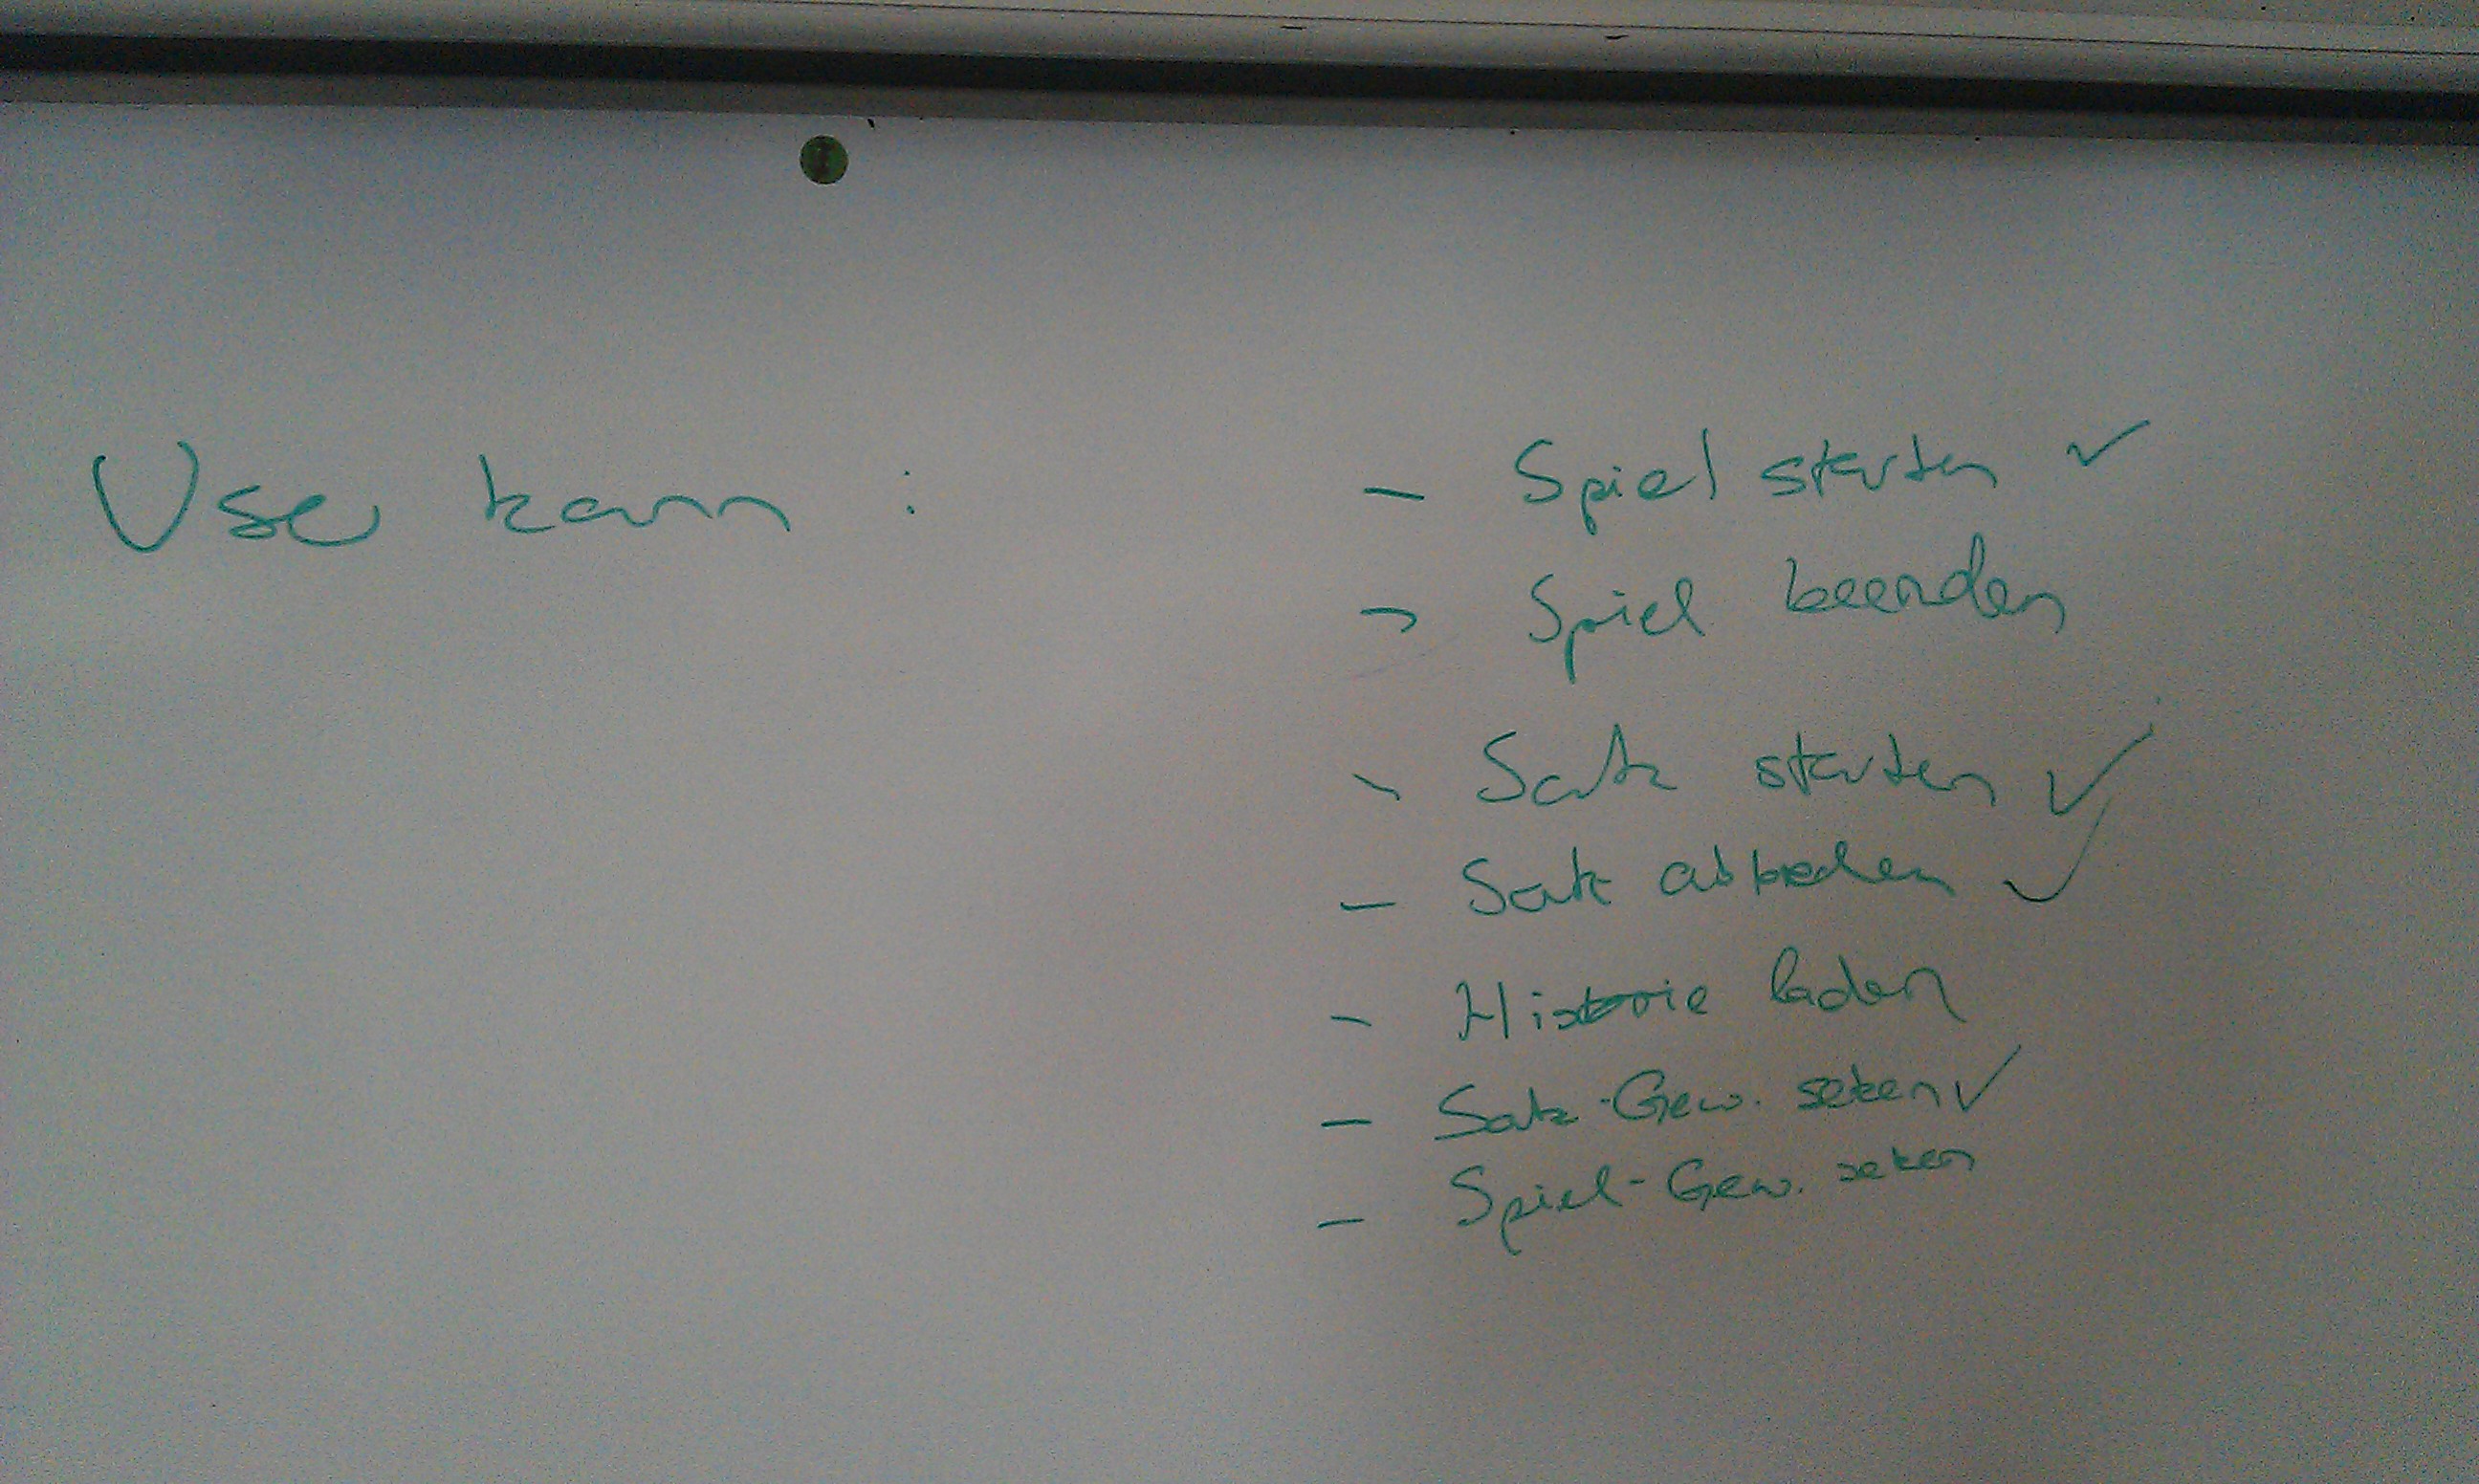 User kann :
- Spiel starten ✓
- Spiel beenden
- Satz starten ✓
- Satz abbrechen ✓
- Historie laden
- Satz-Gew. setzen ✓
- Spiel-Gew. setzen